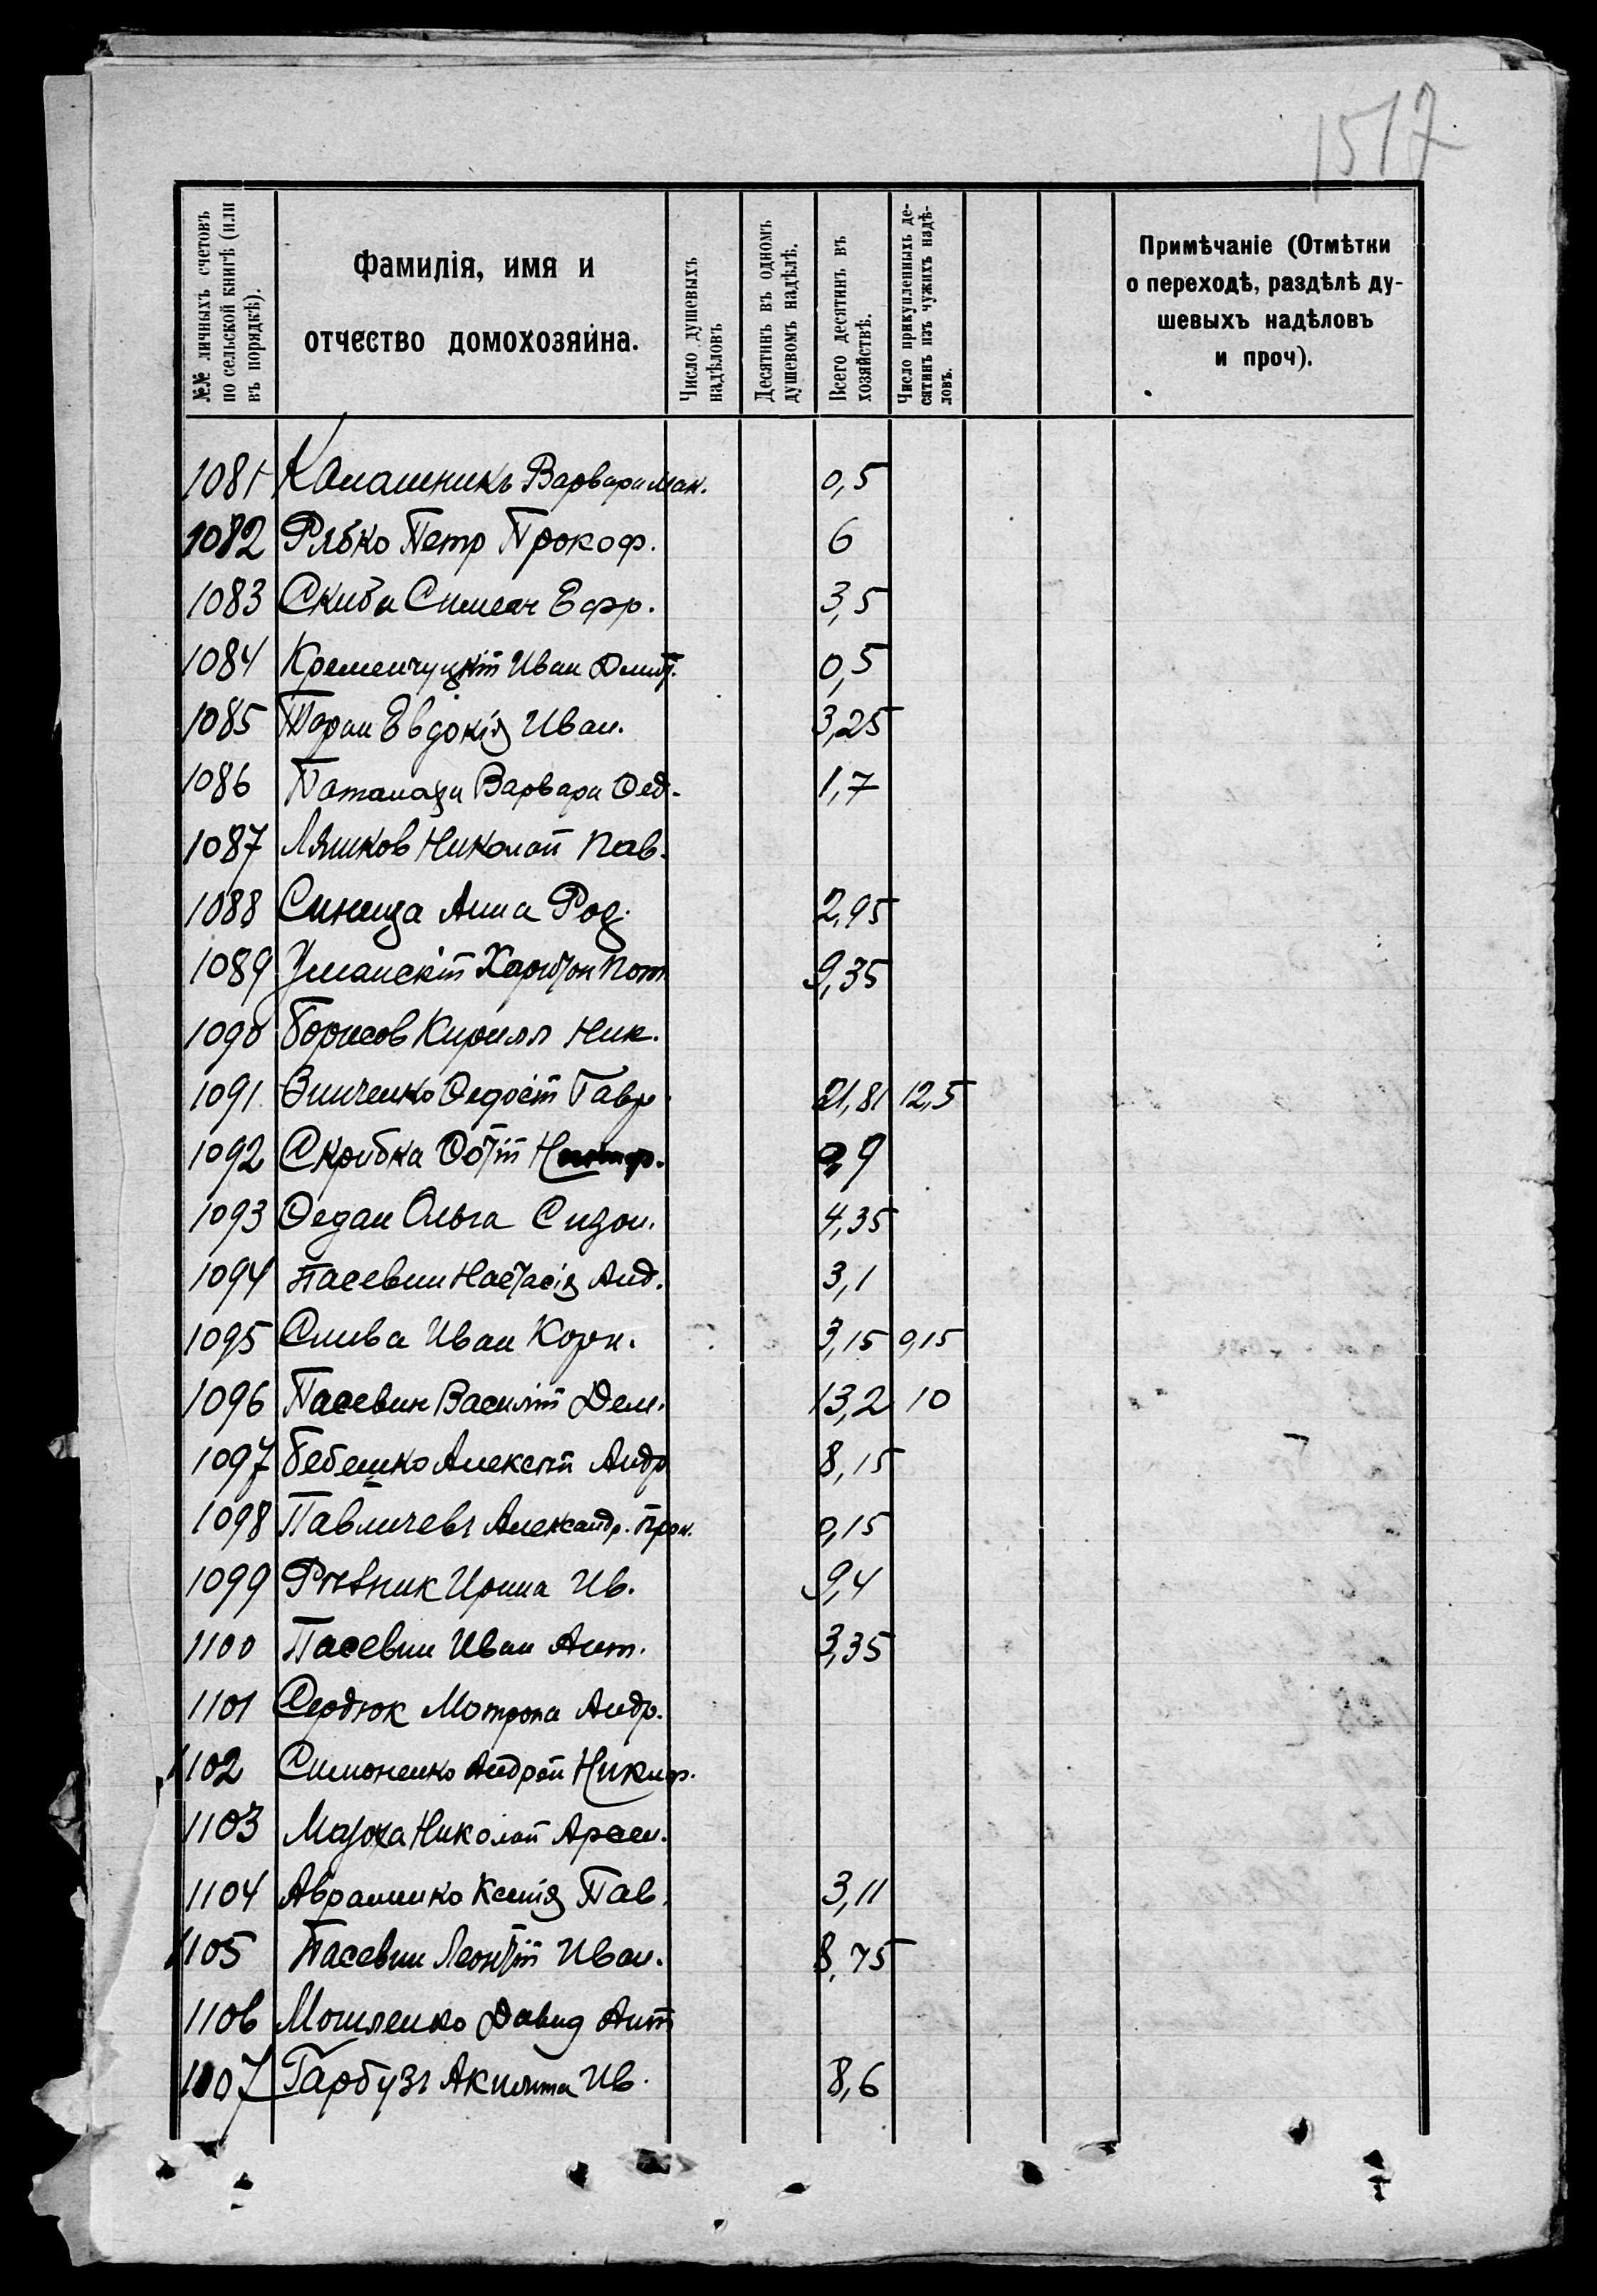 1517
№№ личныхъ счетовъ по сельской книгѣ (или въ порядкѣ).
Фамилія, имя и отчество домохозяина.
Число душевыхъ надѣловъ
Десятинъ въ одномъ душевомъ надѣлѣ.
Всего десятинъ въ хозяйствѣ.
Число прикупленныхъ десятинъ изъ чужихъ надѣловъ.
Примѣчаніе (Отмѣтки о переходѣ, раздѣлѣ душевыхъ надѣловъ и проч).
1081 Калашникъ Варвара Мак. 0,5
1082 Рябко Петр Прокоф. 6
1083 Скиба Симеон Ефр. 3,5
1084 Кременчуцкій Иван Дмит. 0,5
1085 Таран Евдокія Иван. 3,25
1086 Варвара Фед. 1,7
1087 Ляшков Николай Пав.
1088 Синица Анна Род. 2,95
1089 Уманскій Харитон Пот 9,35
1090 Борисов Кирилл Ник.
1091 Зинченко Федосій Гавр. 21,81 12,5
1092 Скрибка Фотій 0,9
1093 Федан Ольга Сизон. 4,35
1094 Пасевин Настасія Анд. 3,1
1095 Слива Иван Корн. 3,15 0,15
1096 Пасевин Василій Дем. 13,2 10
1097 Бебешко Алексей Андр 8,15
1098 Павличевъ Александр. Прок. 0,15
1099 Ирина Ив. 9,4
1100 Пасевин Иван Ант. 3,35
1101 Сердюк Мотрона Андр.
1102 Симоненко Андрей Никиф.
1103 Николай Арсен.
1104 Авраменко Ксенія Пав. 3,11
1105 Пасевин Леонтій Иван. 8,75
1106 Давид Ант
1107 Гарбузъ Акилина Ив. 8,6